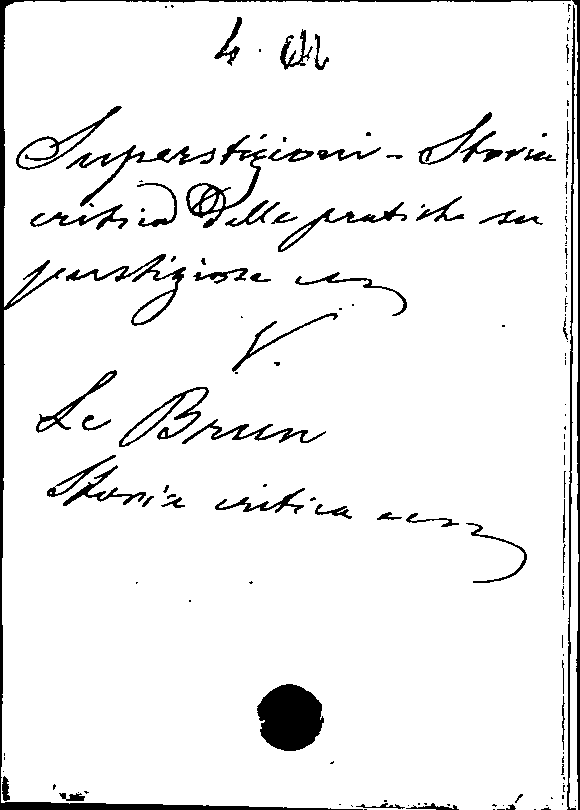 4.
Superstizioni - Storia
critica delle pratiche su
perstiziose
V.
Le Brun
Storia critica